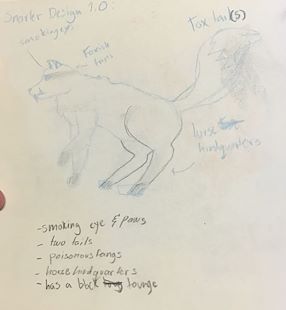 Snarler Design 1.0:
smoking eye
Foxish
Fox tail(s)
horse
hindquarters
-smoking eye & paws
- two tails
- poisonous fangs
- horse hindquarters
- has a black tounge